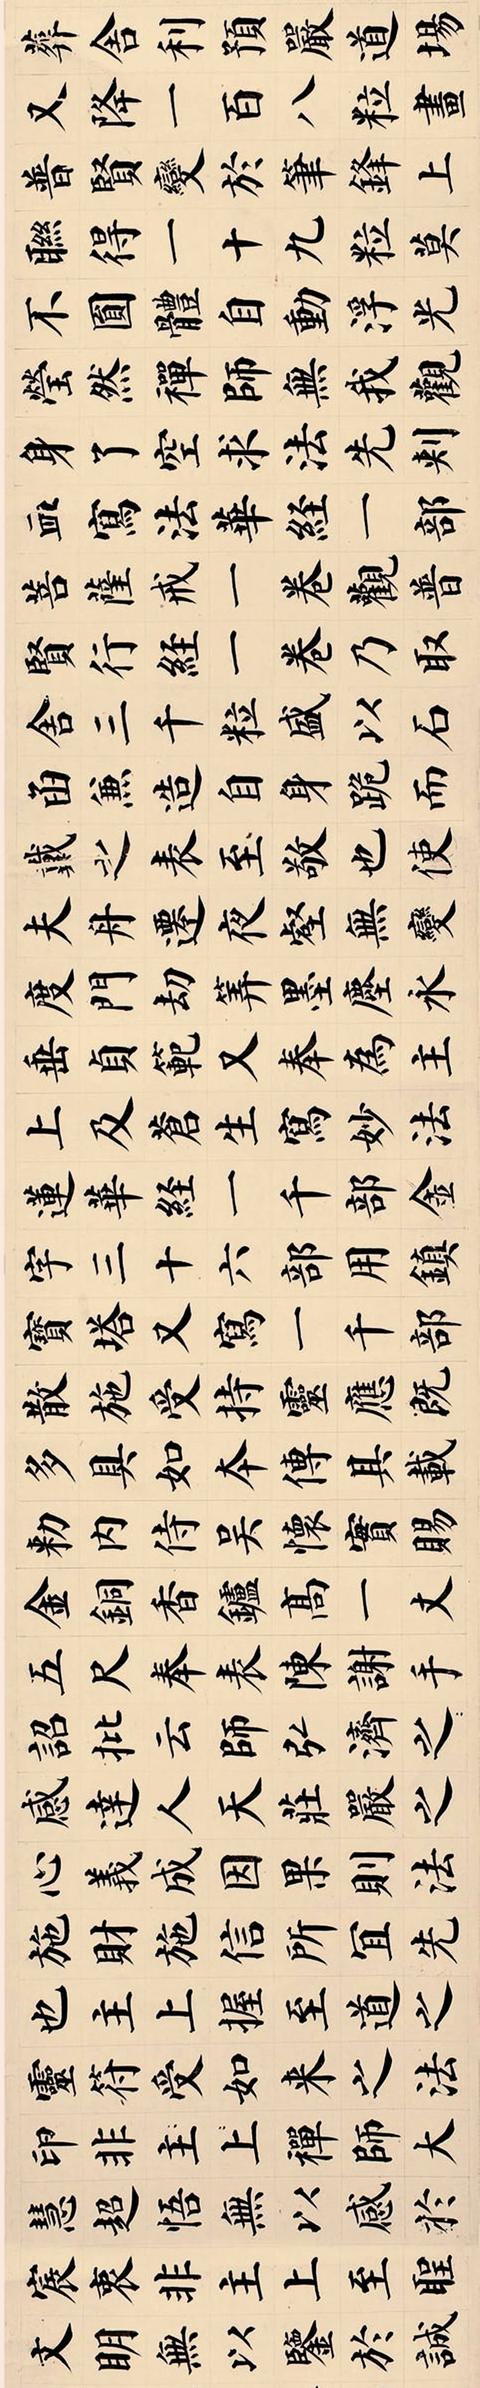 葬舍利預嚴道場
又降一百八粒畫
普賢變於筆鋒上
聯得一十九粒莫
不圓體自動浮光
瑩然禪師無我觀
身了空求法先刺
血寫法華経一部
菩薩戒一卷觀普
賢行経一卷乃取
舍三千粒盛以石
函兼造自身跪而
戴之表至敬也使
夫舟遷夜壑無變
度門劫筭墨塵永
垂貞範又奉為主
上及蒼生寫妙法
蓮華経一千部金
字三十六部用鎮
寶塔又寫一千部
散施受持靈應既
多具如本傳其載
勑内侍吴懷實賜
金銅香鑪高一丈
五尺奉表陳謝手
詔批云師弘濟之
感達人天莊嚴之
心義成因果則法
施財施信所宜先
也主上握至道之
靈符受如来之法
印非主上禪師大
慧超悟無以感於
宸衷非主上至聖
文明無以鑒於誠